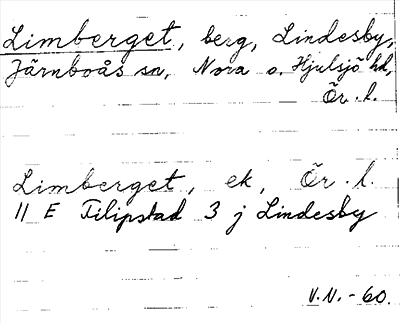 Limberget, berg, Lindesby,
Järnboås sn, Nora o. Hjulsjö hd,
Ör. l.
Limberget, ek, Ör. l.
11 E Filipstad 3 j Lindesby
V.N. -60.